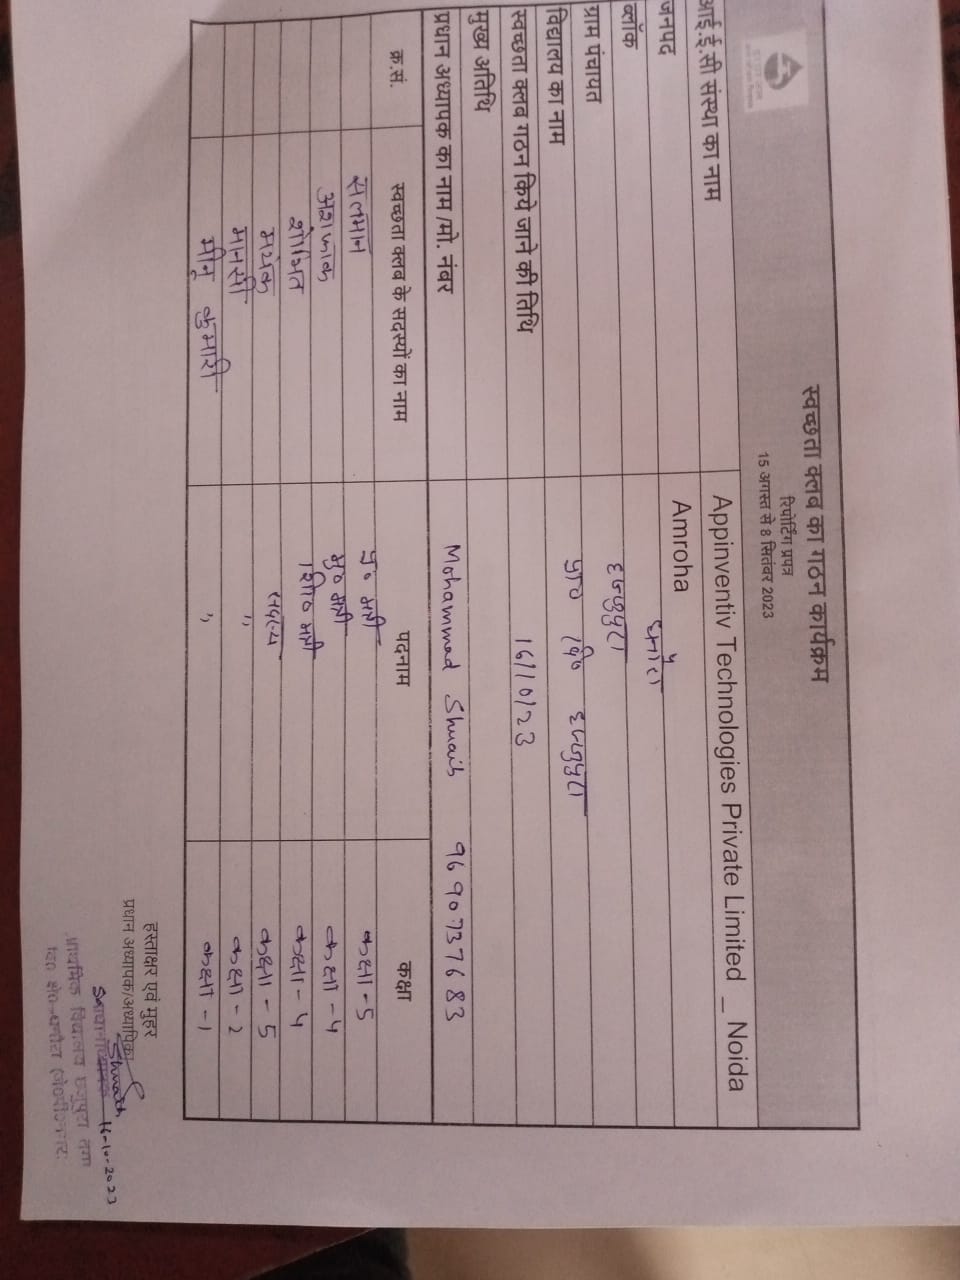 स्वच्छता क्लब का गठन कार्यक्रम
रिपोर्टिंग प्रपत्र
15 अगस्त से 8 सितंबर 2023
आई.ई.सी संस्था का नाम Appinventiv Technologies Private Limited _ Noida
जनपद Amroha
ब्लॉक धनौरा
ग्राम पंचायत
विद्यालय का नाम प्रा० वि०
स्वच्छता क्लब गठन किये जाने की तिथि 16/10/23
मुख्य अतिथि
प्रधान अध्यापक का नाम /मो. नंबर Mohammad Shuaib 9690737683
क्र.सं. स्वच्छता क्लब के सदस्यों का नाम पदनाम कक्षा
सलमान प्र० मंत्री कक्षा - 5
अशफाक मु० मंत्री कक्षा - 4
शोभित शि० मंत्री कक्षा - 4
मयंक सदस्य कक्षा - 5
मानसी " कक्षा - 2
मीनु कुमारी " कक्षा - 1
हस्ताक्षर एवं मुहर
प्रधान अध्यापक/अध्यापिका
Shuaib
16-10-2023
प्राथमिक विद्यालय